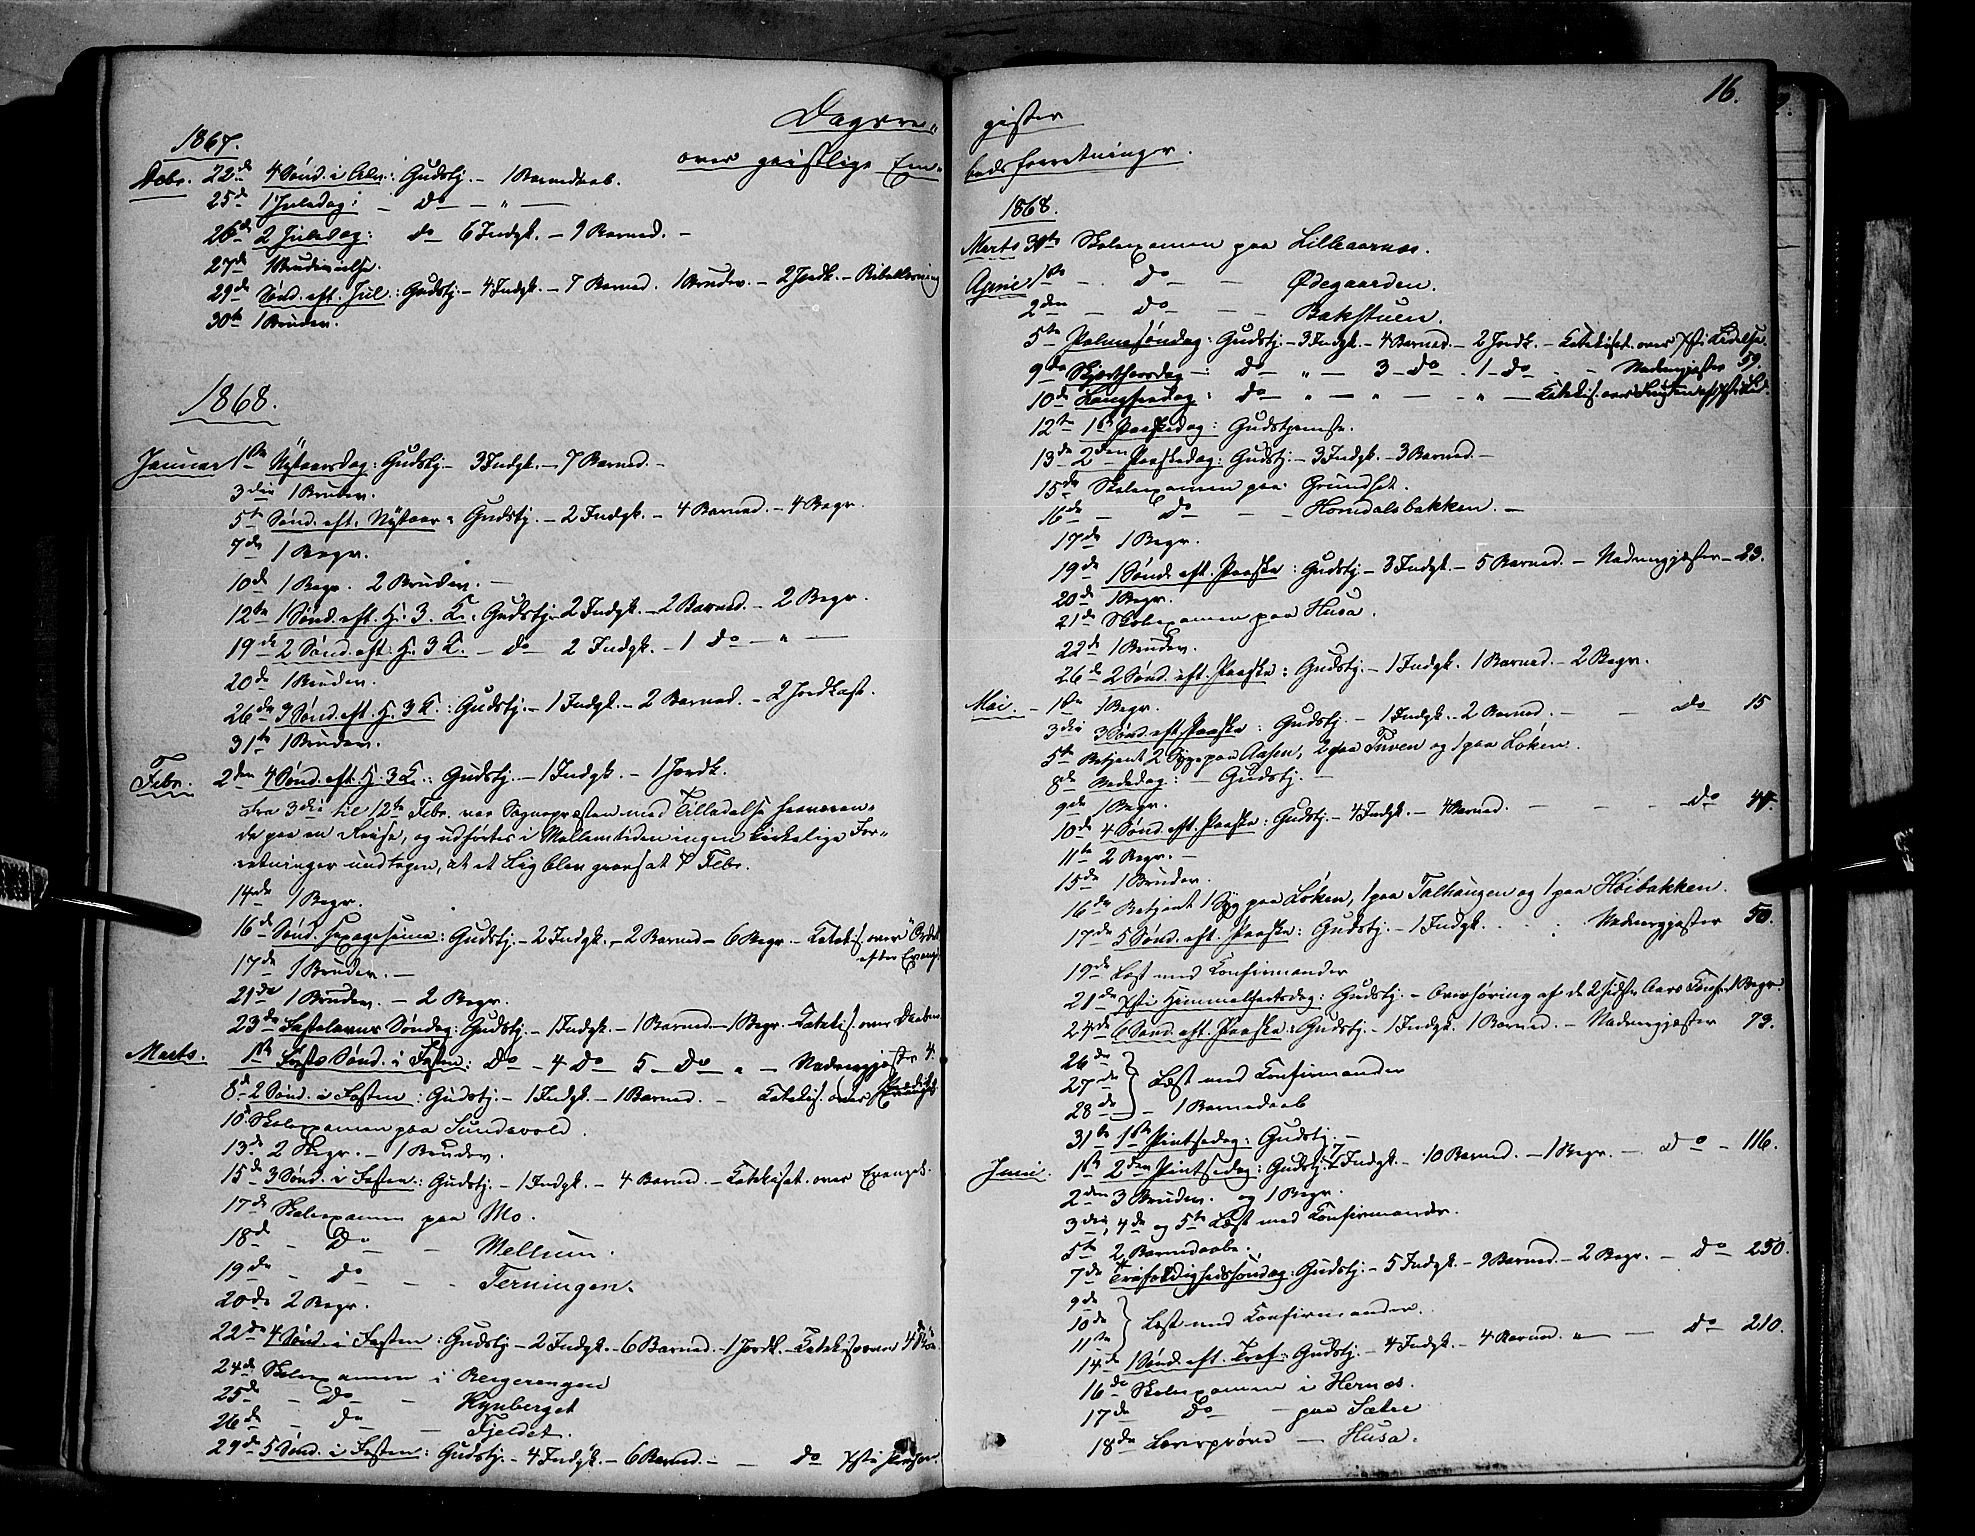 16.
Dagsre-
gister
over geistlige Em-
bedsforretninger.
1867.
Decbr. 22de 4 Sønd. i Adv.: Gudstj. - 1 Barnedaab.
25de 1 Juledag: - Do - " -
26de 2 Juledag: do 6 Indgk. - 9 Barned. -
27de 1 Brudevielse.
29de Sønd. eft. Jul: Gudstj. - 4 Indgk. - 7 Barned. 1 Brudev. - 2 Jordk. - Bibellæsning
30te 1 Brudev.
1868.
Januar 1ste Nytaarsdag: Gudstj. - 3 Indgk. - 7 Barned. -
3die 1 Brudev.
5te Sønd. eft. Nytaar: Gudstj. - 2 Indgk. - 4 Barned. - 4 Begr.
7de 1 Begr.
10de 1 Begr. 2 Brudev. -
12te 1 Sønd. eft. H. 3. K.: Gudstj. 2 Indgk. - 2 Barned. - 2 Begr.
19de 2 Sønd. eft. H. 3 K. - Do 2 Indgk. - 1 Do - " -
20de 1 Brudev.
26de 3 Sønd. eft. H. 3 K.: Gudstj. - 1 Indgk. - 2 Barned. - 2 Jordkast.
31te 1 Brudev.
Febr. 2den 4 Sønd. eft. H. 3 K.: Gudstj. - 1 Indgk. - 1 Jordk.
Fra 3die til 12te Febr. var Sognepræsten med Tilladelse fraværen-
de paa en Reise, og udførtes i Mellemtiden ingen kirkelige For-
retninger undtagen, at et Lig blev gravsat Febr.
14de 1 Begr.
16de Sønd. Sexagesima: Gudstj. - 2 Indgk. - 2 Barned. - 6 Begr. - Katekis. over
efter Evang.
17de 1 Brudev. -
21de 1 Brudev. - 2 Begr.
23de Fastelavns Søndag: Gudstj. - 1 Indgk. - 1 Barned. - 1 Begr. - Katekis. over Daaben
Marts. 1ste Første Sønd. i Fasten: Do - 4 Do 5 Do " - Nadvergjæster 4.
8de 2 Sønd. i Fasten: Gudstj. - 1 Indgk. - 1 Barned. - Katekis. over
10de Skolexamen paa Sundevold.
13de 2 Begr. - 1 Brudev.
15de 3 Sønd. i Fasten: Gudstj. - 1 Indgk. - 4 Barned. - Katekisat. over Evangel.
17de Skolexamen paa Mo.
18de - Do - Mellum.
19de - do - - Terningen.
20de 2 Begr.
22de 4 Sønd. i Fasten: Gudstj. - 2 Indgk. - 6 Barned. - 1 Jordk. - Katekis. over 4de
24de Skolexamen i Bergerengen
25de - Do - Kynberget
26de - do - Fjeldet.
29de 5 Sønd. i Fasten: Gudstj. - 4 Indgk. - 6 Barned. - - do
1868.
Marts 31te Skolexamen paa Lilleaarnæs.
April 1ste - Do - - Ødegaarden.
2den - do - - Bakstuen.
5te Palmesøndag: Gudstj. - 3 Indgk. - 4 Barned. - 2 Jordk. - Katekisat. over Xsti Lidelse.
9de Skjærthorsdag -: Do - " - 3 - Do. 1 - Do - - Nadvergjæster 59.
10de Langfredag: Do - " - " - " - Katekis. over
12te 1ste Paaskedag: Gudstjeneste.
13de 2den Paaskedag: Gudstj. - 3 Indgk. - 3 Barned. -
15de Skolexamen paa Grundset.
16de - Do - - Horndalsbakken. -
17de 1 Begr.
19de 1 Sønd. eft. Paaske: Gudstj. - 3 Indgk. - 5 Barned. - Nadvergjæster - 23.
20de 1 Begr.
21de Skolexamen paa Husa.
22de 1 Brudev.
26de 2 Sønd. eft. Paaske: Gudstj. - 1 Indgk. 1 Barned. - 2 Begr.
Mai. - 1ste 1 Begr.
3die 3 Sønd. eft. Paaske: Gudstj. - 1 Indgk. - 2 Barned. - - do 15
5te Betjent 2 Syge paa Aasen, 2 paa Tuven og 1 paa Løken.
8de Bededag: - Gudstj. -
9de 1 Begr.
10de 4 Sønd. eft. Paaske: Gudstj. - 4 Indgk. - 4 Barned. - - - Do 44.
11te 2 Begr. -
15de 1 Brudev.
16de Betjent 1 Syg paa Løken, 1 paa Talhaugen og 1 paa Høibakken.
17de 5 Sønd. eft. Paaske: Gudstj. - 1 Indgk. - - Nadvergjæster 50.
19de Læst med Konfirmander
21de Xsti Himmelfartsdag: Gudstj. - Overhøring af de 2 sidste Aars Konf. 1 Begr.
24de 6 Sønd. eft. Paaske: Gudstj. - 1 Indgk. 1 Barned. - Nadvergjæster 73.
26de
27de Læst med Konfirmander
28de - 1 Barnedaab
31te 1ste Pintsedag: Gudstj. -
Juni. 1ste 2den Pintsedag: Gudstj. 7 Indgk. - 10 Barned. - 1 Begr. - Do - 116.
2den 3 Brudev. og 1 Begr.
3die, 4de og 5te Læst med Konfirmander.
5te 2 Barnedaabe.
7de Trefoldighedssøndag: Gudstj. - 5 Indgk. - 9 Barned. - 2 Begr. - Do 250.
9de
10de Læst med Konfirmander.
11te
14de 1 Sønd. eft. Tref.: Gudstj. - 4 Indgk. - 4 Barned. " - Do 210.
16de Skolexamen i Hernæs.
17de Do - paa Sætre
18de Læseprøve - Husa.